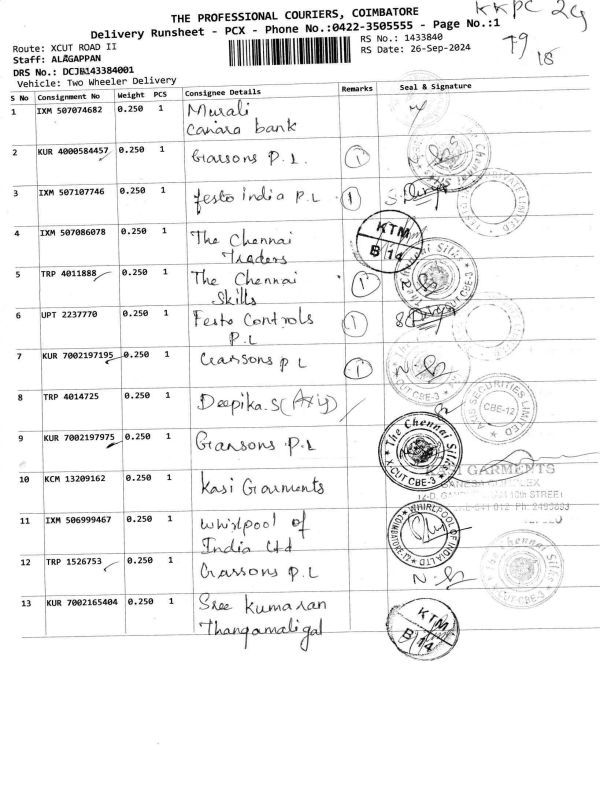 THE PROFESSIONAL COURIERS, COIMBATORE
KKPC 29
Delivery Runsheet - PCX - Phone No.:0422-3505555 - Page No.:1
Route: XCUT ROAD II
RS No.: 1433840
19
18
Staff: ALAGAPPAN
RS Date: 26-Sep-2024
DRS No.: DCJB143384001
Vehicle: Two Wheeler Delivery
S No Consignment No Weight PCS Consignee Details Remarks Seal & Signature
1 IXM 507074682 0.250 1 Murali
Canara bank
2 KUR 4000584457 0.250 1 Garsons P.L. 1
3 IXM 507107746 0.250 1 festo india P.L 1 S. Divya
4 IXM 507086078 0.250 1 The Chennai
Traders
KTM
B 14
5 TRP 4011888 0.250 1 The Chennai 1
Skills
6 UPT 2237770 0.250 1 Festo Controls 1
P.L
7 KUR 7002197195 0.250 1 Garsons P L 1
X-CUT CBE-3
8 TRP 4014725 0.250 1 Deepika.S (Axis)
AXIS SECURITIES LIMITED
CBE-12
9 KUR 7002197975 0.250 1 Garsons P.L
The Chennai Silks
X-CUT CBE-3
10 KCM 13209162 0.250 1 Kasi Garments
GARMENTS
10th STREET
11 IXM 506999467 0.250 1 Whirlpool of
India Ltd
WHIRLPOOL OF INDIA LTD
12 TRP 1526753 0.250 1 Garsons P.L
The Chennai Silks
X-CUT CBE-3
13 KUR 7002165404 0.250 1 Sree Kumaran
Thangamaligai
KTM
B 14